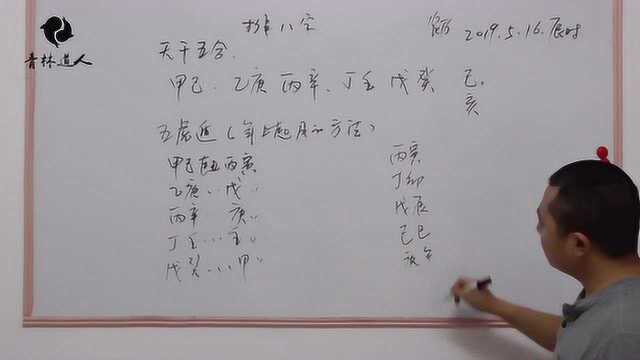 青林道人
排八字
2019.5.16.辰时
天干五合.
甲己. 乙庚 丙辛. 丁壬 戊癸
己.
亥
五虎遁(年上起月的方法)
甲己起丙寅
乙庚..戊..
丙辛 庚..
丁壬...壬..
戊癸....甲..
丙寅
丁卯
戊辰
己巳